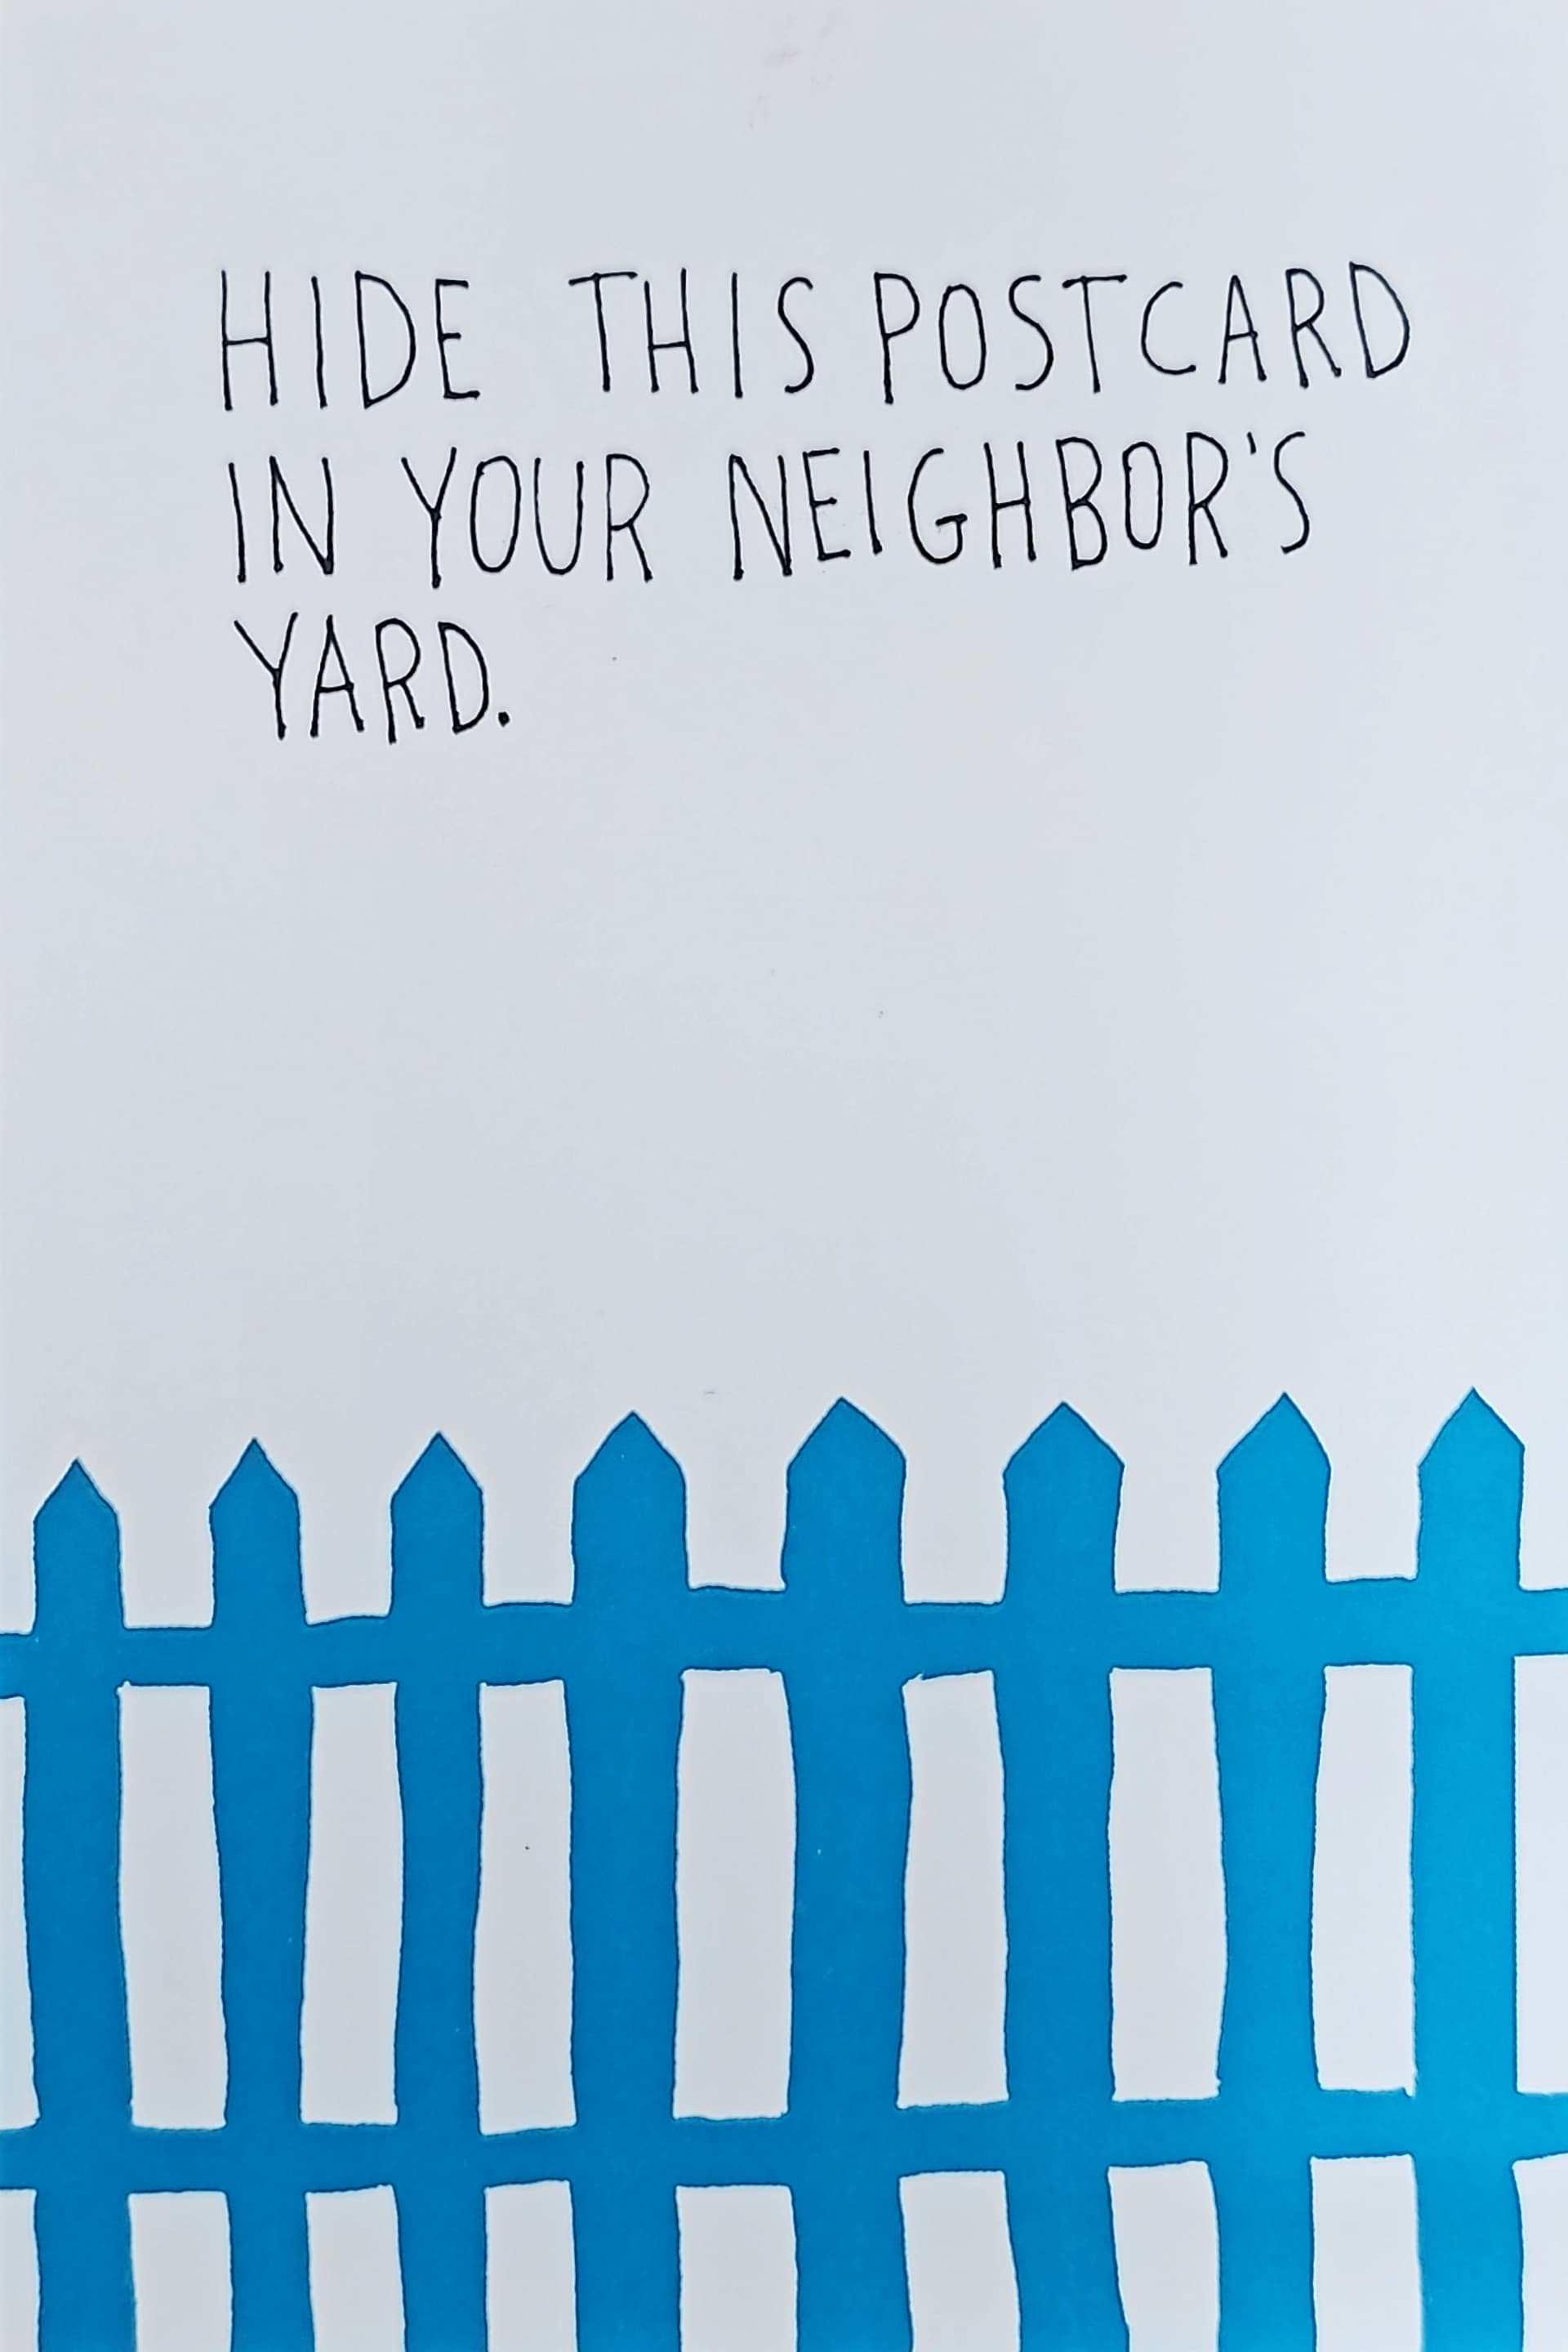 HIDE THIS POSTCARD
IN YOUR NEIGHBOR'S
YARD.